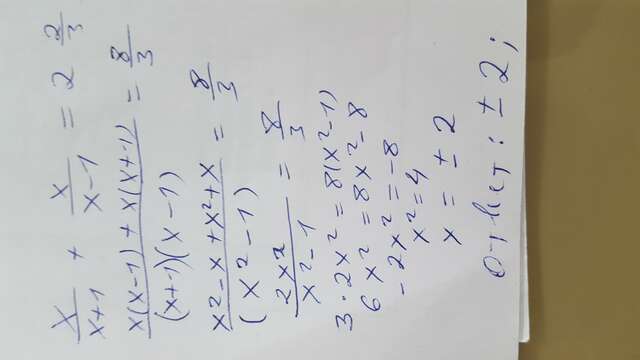 x/(x+1) + x/(x-1) = 2 2/3
(x(x-1) + x(x+1))/((x+1)(x-1)) = 8/3
(x²-x+x²+x)/(x²-1) = 8/3
2x²/(x²-1) = 8/3
3·2x² = 8(x²-1)
6x² = 8x²-8
-2x² = -8
x² = 4
x = ±2
Ответ: ±2;